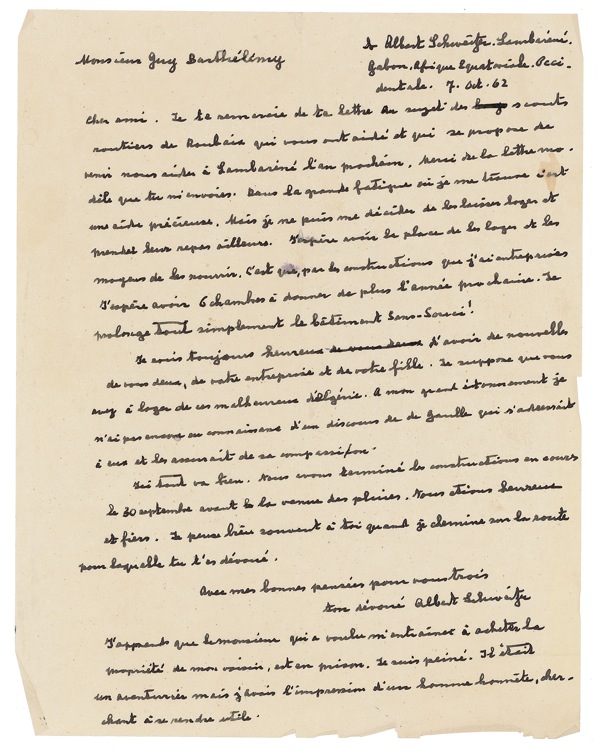 Monsieur Guy Barthélémy
Dr Albert Schweitzer. Lambaréné.
Gabon. Afrique Equatoriale. Occi-
dentale. 7. Oct. 62
Cher ami. Je te remercie de ta lettre au sujet des scouts
routiers de Roubaix qui vous ont aidé et qui se propose de
venir nous aider à Lambaréné l'an prochain. Merci de la lettre mo-
dèle que tu m'envoies. Dans la grande fatigue où je me trouve c'est
une aide précieuse. Mais je ne puis me décider de les laisser loger et
prendre leur repas ailleurs. J'espère avoir la place de les loger et les
moyens de les nourrir. C'est que, par les constructions que j'ai entreprises
J'espère avoir 6 chambres à donner de plus l'année prochaine. Je
prolonge tout simplement le bâtiment Sans-Souci!
Je suis toujours heureux de vous deux d'avoir de nouvelles
de vous deux, de votre entreprise et de votre fille. Je suppose que vous
avez à loger de ces malheureux d'Algérie. A mon grand étonnement je
n'ai pas encore eu connaissance d'un discours de de Gaulle qui s'adressait
à eux et les assurait de sa compassion.
Ici tout va bien. Nous avons terminé les constructions en cours
le 30 septembre avant la venue des pluies. Nous étions heureux
et fiers. Je pense bien souvent à toi quand je chemine sur la route
pour laquelle tu t'es dévoué.
Avec mes bonnes pensées pour vous trois
ton dévoué Albert Schweitzer
J'apprends que le monsieur qui a voulu m'entraîner à acheter la
propriété de mon voisin, est en prison. Je suis peiné. Il était
un aventurier mais j'avais l'impression d'un homme honnête, cher-
chant à se rendre utile.